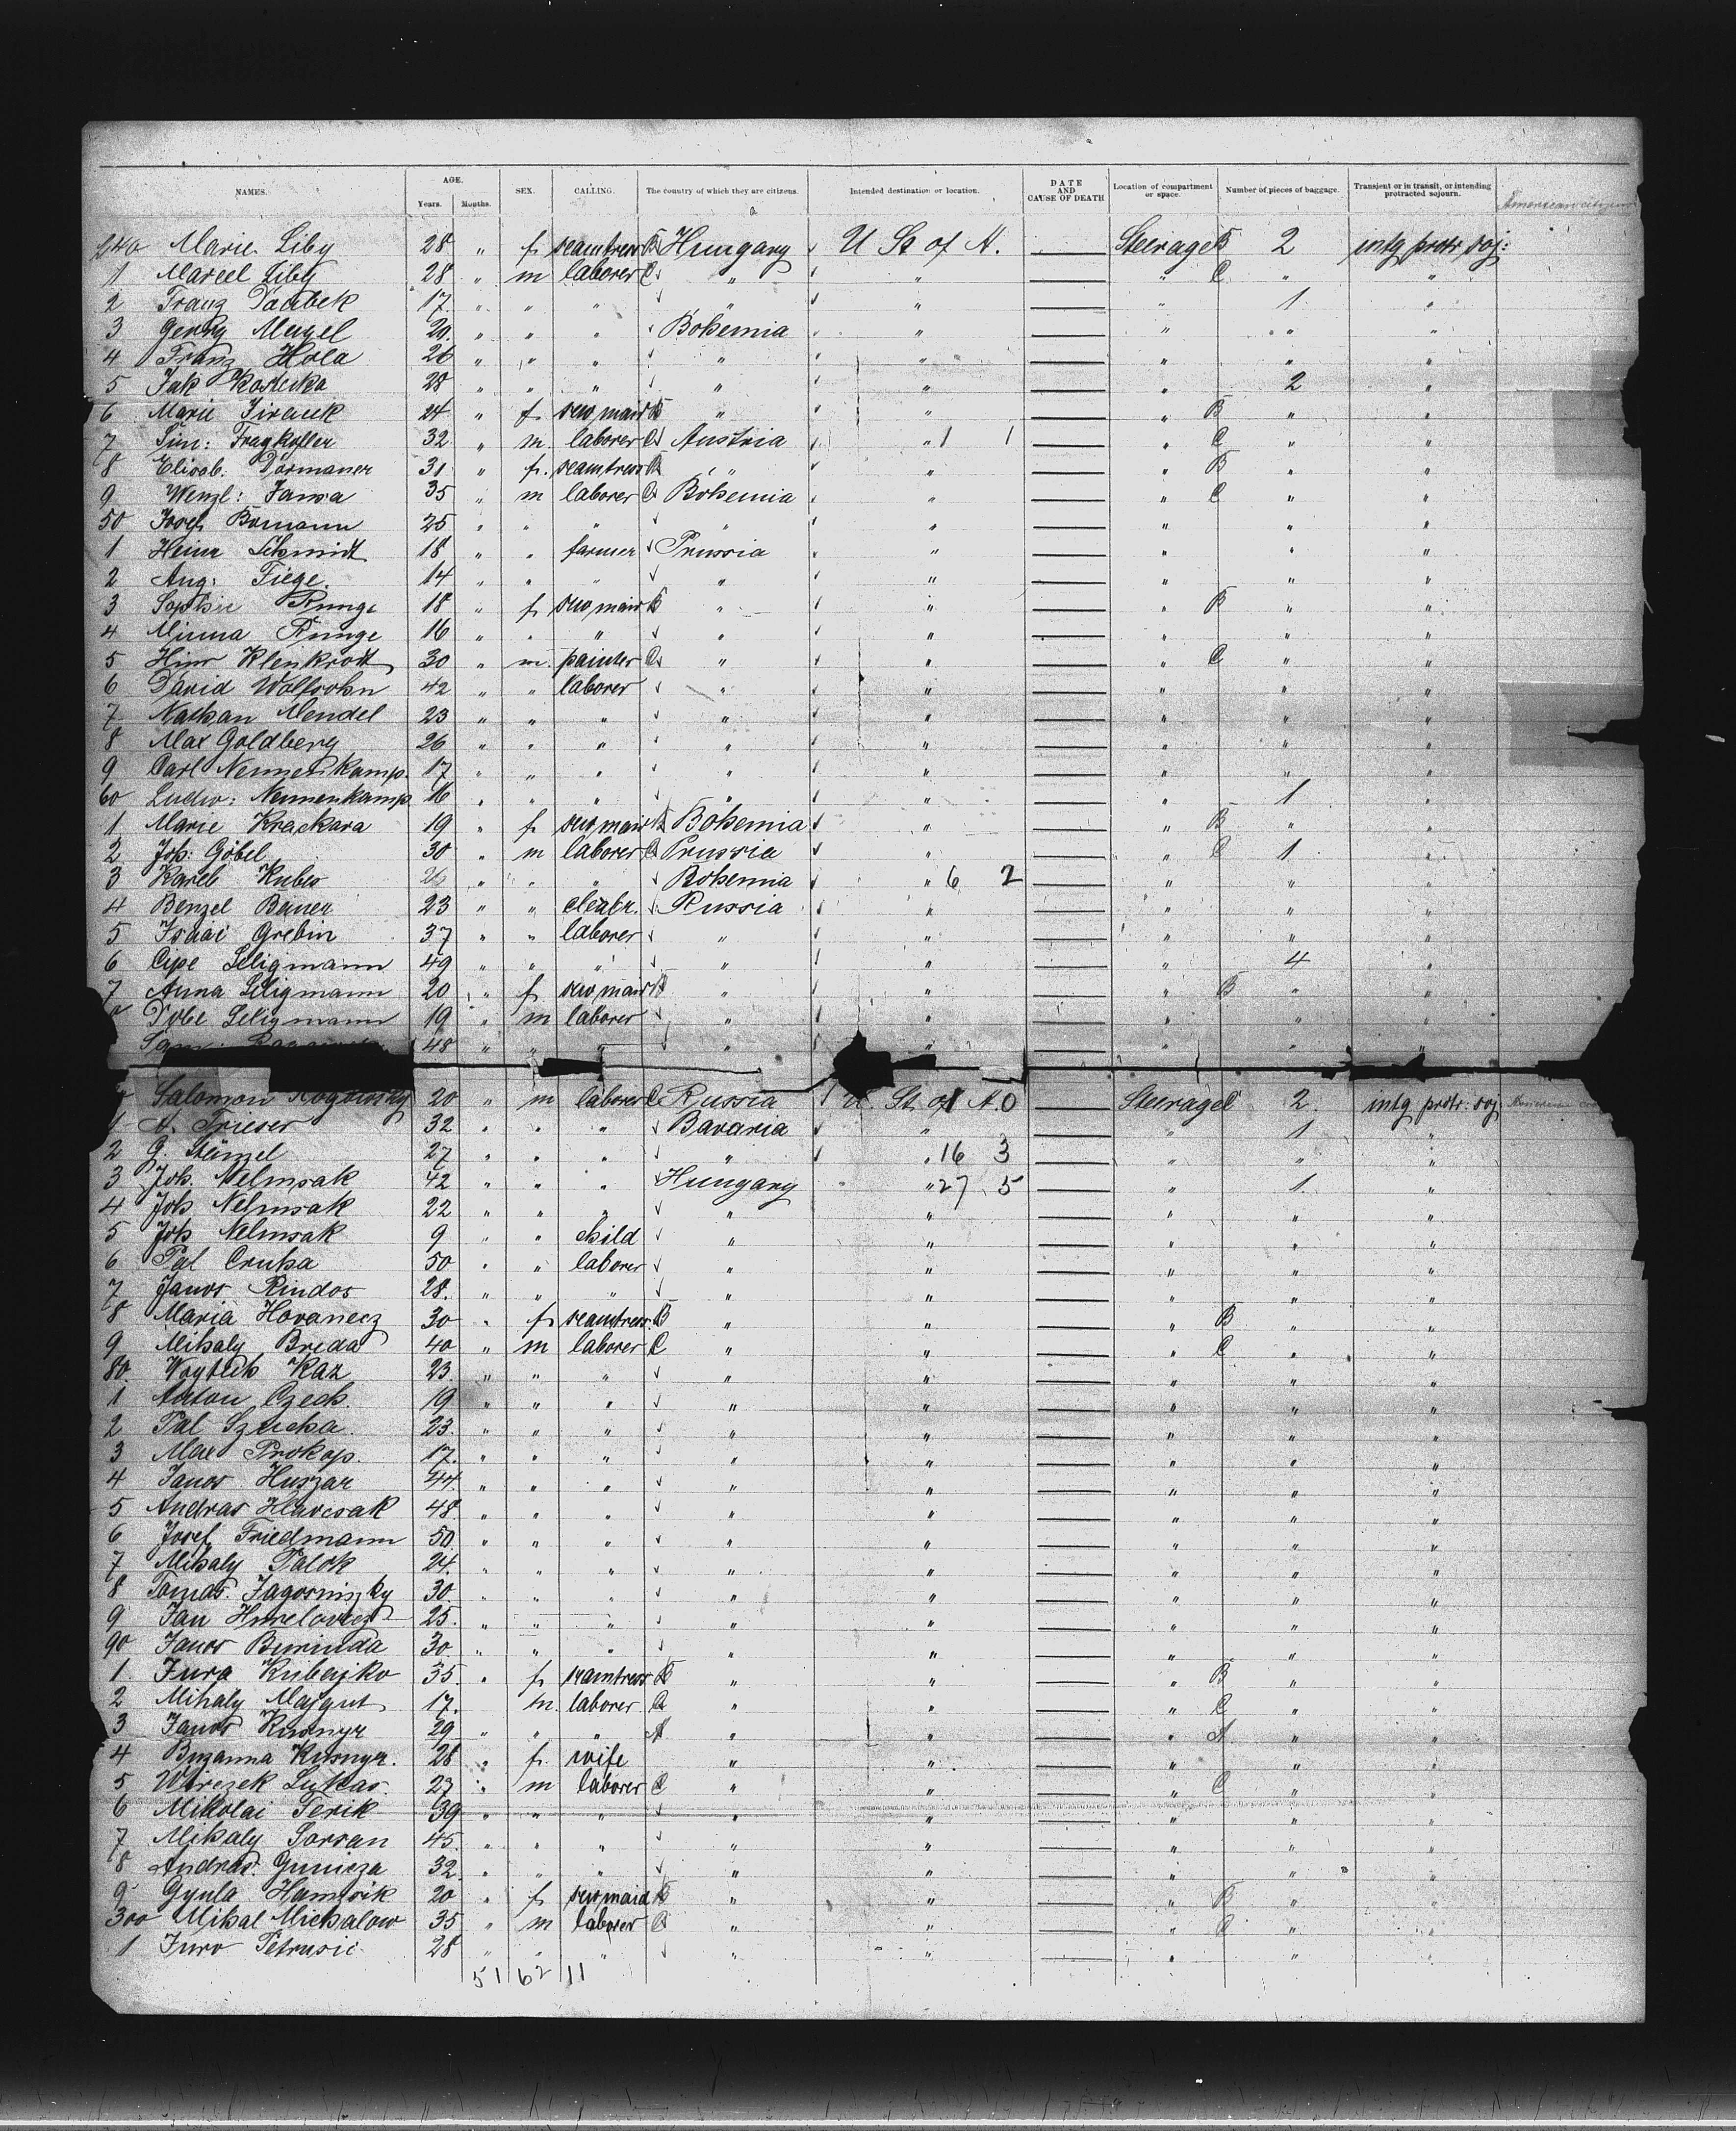 NAMES. AGE. Years. Months. SEX. CALLING. The country of which they are citizens. Intended destination or location. DATE AND CAUSE OF DEATH Location of compartment or space. Number of pieces of baggage. Transient or in transit, or intending protracted sojourn. American citizens
240 Marie Liby 28 " f seamtress B Hungary U St of A. Steerage B 2 intg protr. soj:
1 Marcel Liby 28 " m laborer C " " " C " "
2 Franz 17 " " " " " " 1 "
3 Georg 29 " " " Bohemia " " " "
4 Franz Hola 26 " " " " " " " "
5 Jak Kostecka 28 " " " " " " 2 "
6 Marie 24 " f serv maid B " " " B " "
7 Sim: 32 " m. laborer C Austria " 1 1 " C " "
8 Elisab. Dormaner 31 " f. seamtress B " " " B " "
9 Wenzl: Jansa 35 " m laborer C Bohemia " " C " "
50 Josef Bomann 25 " " " " " " " "
1 Heinr Schmidt 18 " " farmer Prussia " " " "
2 Aug: Fiege. 14 " " " " " " " "
3 Sophie Runge 18 " f serv maid B " " " B " "
4 Minna Runge 16 " " " " " " " "
5 Hinr Klenkrott 30 " m. painter C " " " C " "
6 David Wolfsohn 42 " " laborer " " " " "
7 Nathan Mendel 23 " " " " " " " "
8 Max Goldberg 26 " " " " " " " "
9 Carl Nennenkamp. 17 " " " " " " " "
60 Ludw: Nennenkamp 16 " " " " " " 1 "
1 Marie Krackara 19 " f serv maid B Bohemia " " B " "
2 Joh: Göbel 30 " m laborer C Prussia " " C 1 "
3 Karel Kubes " " " Bohemia " 6 2 " " "
4 Benzel Bauer 23 " " Russia " " " "
5 Isaai Grebin 37 " " laborer " " " " "
6 Cipe Seligmann 49 " " " " " " 4 "
7 Anna Seligmann 20 " f serv maid B " " " B " "
8 Dobe Seligmann 19 " m laborer " " " " "
48 " " " " " " " "
Salomon Rogowsky 20 " m laborer C Russia U. St. of A. 1 0 Steerage C 2 intg protr: soj:
1 A. Trieser 32 " " " Bavaria " " 1 "
2 G. Stünzel 27 " " " " " 16 3 " " "
3 Joh. Nelmsak 42 " " " Hungary " 27 5 " 1 "
4 Joh Nelmsak 22 " " " " " " " "
5 Joh Nelmsak 9 " " child " " " " "
6 Pal Cruha 50 " " laborer " " " " "
7 Janos Rindos 28. " " " " " " " "
8 Maria Hovanecz 30 " f seamtress. B " " " B " "
9 Mihaly Breda 40 " m laborer C " " " C " "
80. Voytech Kaz 23. " " " " " " " "
1 Anton Czech. 19 " " " " " " " "
2 Pal Szucha. 23. " " " " " " " "
3 Max Prokop. 17. " " " " " " " "
4 Janos Huszar 44. " " " " " " " "
5 Andras Hlavcsak 48 " " " " " " " "
6 Josef Friedmann 50 " " " " " " " "
7 Mihaly Palok 24. " " " " " " " "
8 Tomas. Jagorniszky 30. " " " " " " " "
9 Jan 25. " " " " " " " "
90 Janos Burinda 30. " " " " " " " "
1. Jura Kubajko 35. " f seamtress. B " " " B " "
2 Mihaly Majgut 17. m. laborer C " " " C " "
3 Janos Kusnyr 29 " " " A " " " A " "
4 Buzanna Kusnyer. 28 " f. wife " " " " "
5 Worczek Lukas. 27 " m laborer C " " " C " "
6 Mikolai Terik 39 " " " " " " " "
7 Mihaly Sorsan 45. " " " " " " " "
8 Andras. Gunicza 32. " " " " " " " "
9 Gyula Hamzsik 20 " f serv maid B " " " B " "
300 Mihal Michalow 35 " m laborer C " " " C " "
1 Juro Petrusic 28 " " " " " " " "
51 62 11